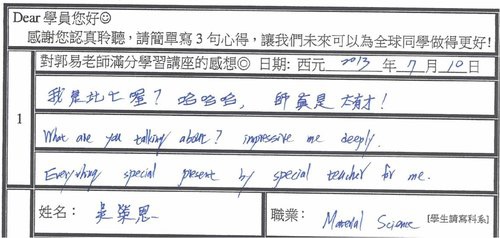 Dear 學員您好☺
感謝您認真聆聽，請簡單寫 3 句心得，讓我們未來可以為全球同學做得更好!
對郭易老師滿分學習講座的感想◎ 日期: 西元 2013 年 7 月 10 日
1
我是北七喔? 哈哈哈, 師真是大有才!
What are you talking about? impressive me deeply.
Everything special present by special teacher for me.
姓名: 吳榮恩 職業: Material Science [學生請寫科系]